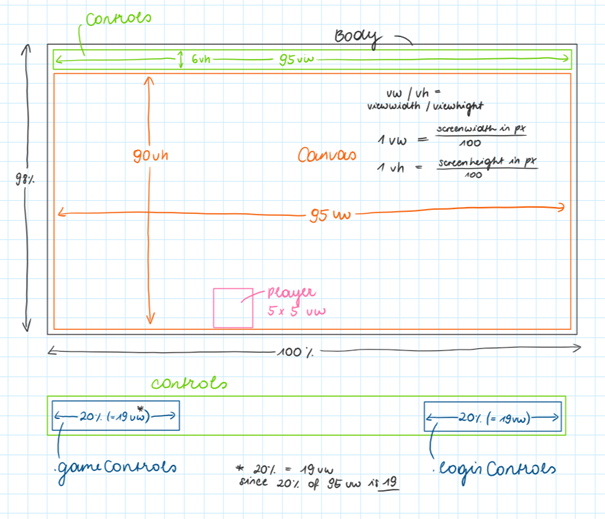 Controls
Body
6vh
95vw
vw / vh =
viewwidth / viewhight
1 vw = screenwidth in px
100
90vh
Canvas
1 vh = screenheight in px
100
98%
95 vw
player
5 x 5 vw
100%
controls
20% (=19vw*)
20% (=19vw)
.gameControls
* 20% = 19vw
since 20% of 95 vw is 19
.loginControls